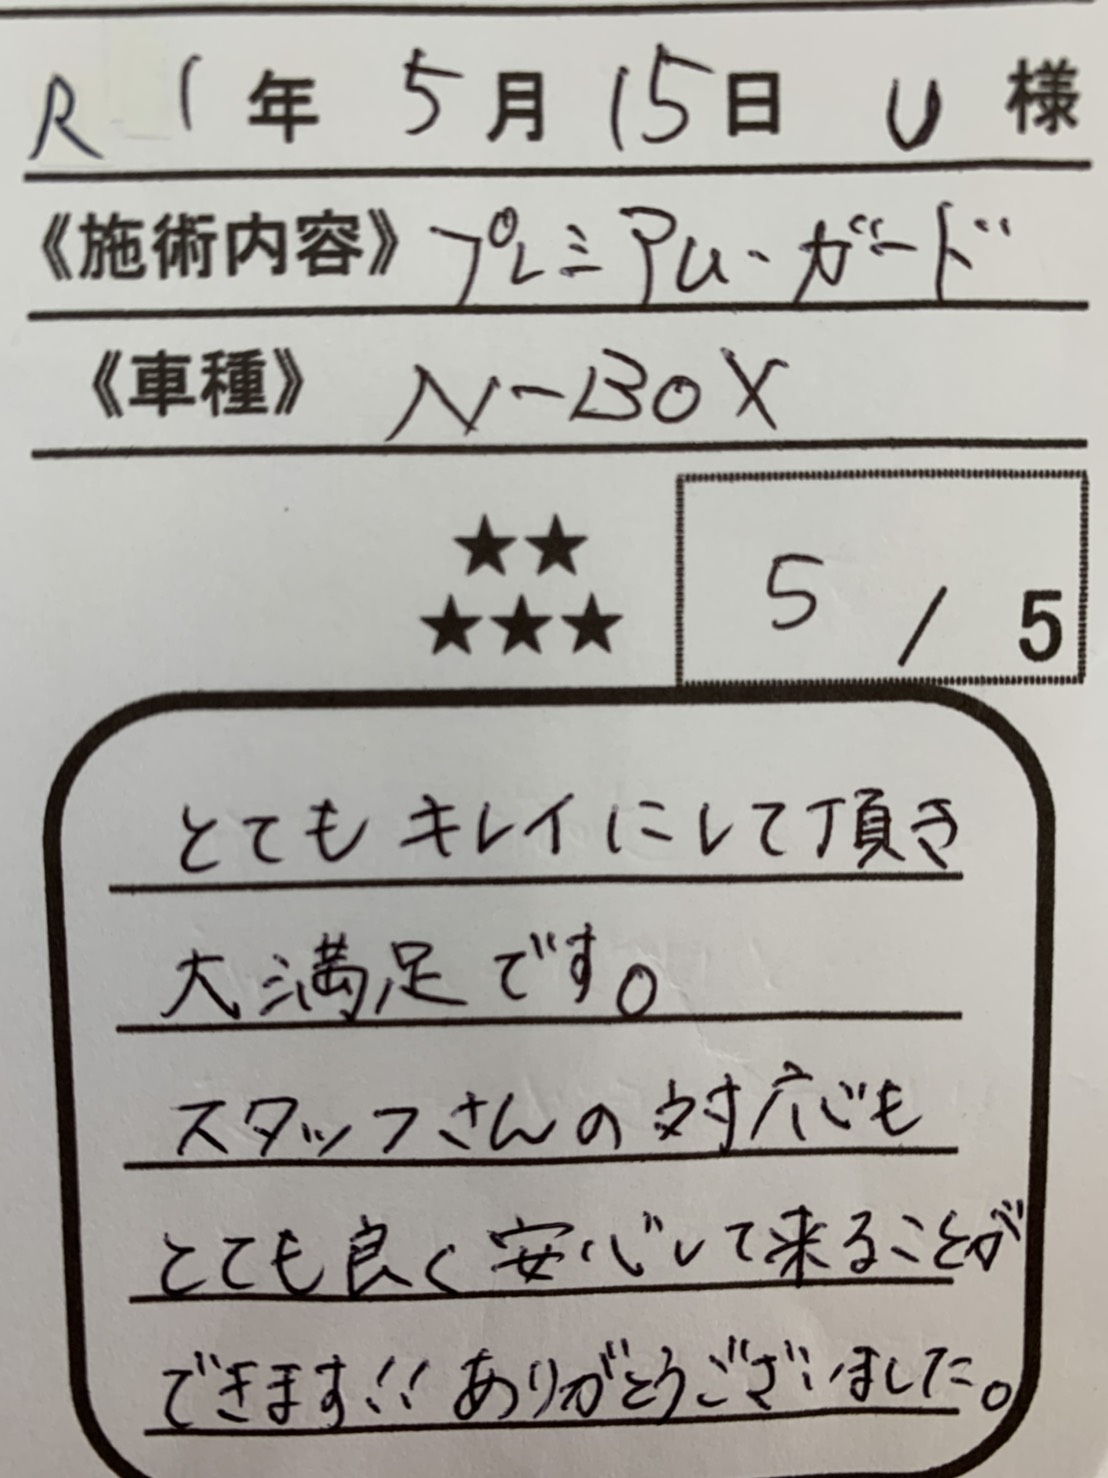 R 1年 5月 15日 U 様
《施術内容》 プレミアム・ガード
《車種》 N-BOX
★★
★★★
5 / 5
とてもキレイにして頂き
大満足です。
スタッフさんの対応も
とても良く安心して来ることが
できます!! ありがとうございました。